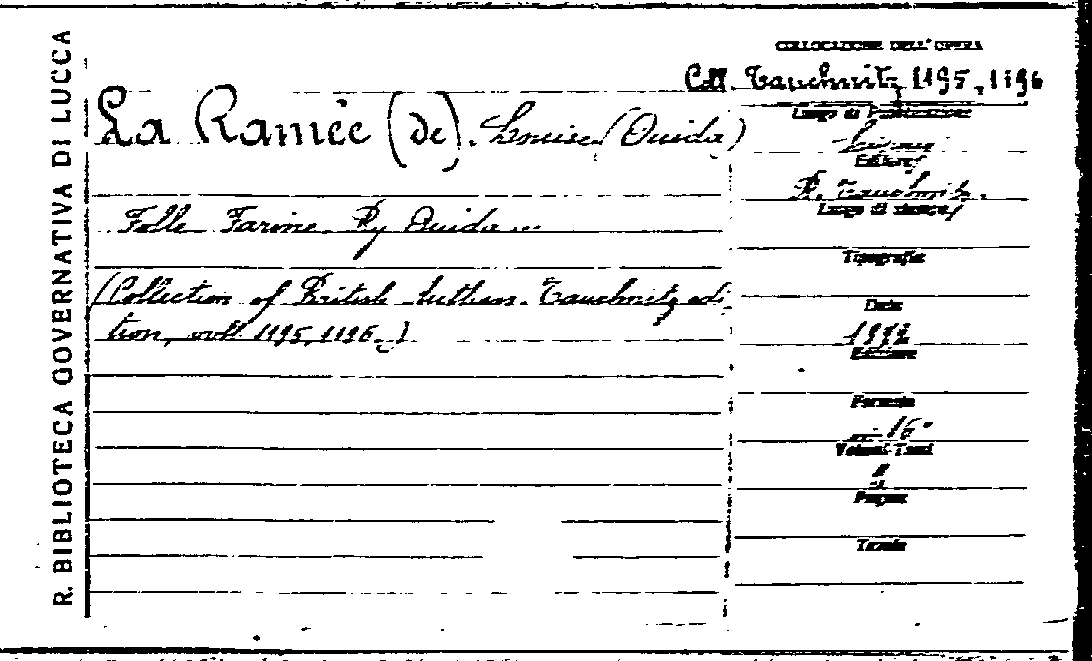 R. BIBLIOTECA GOVERNATIVA DI LUCCA
COLLOCAZIONE DELL'OPERA
Coll. Tauchnitz 1195, 1196
La Ramée (de). Louise (Ouida)
Folle Farine. By Ouida...
(Collection of British Authors. Tauchnitz edi-
tion, voll. 1195, 1196.)
Luogo di Pubblicazione
Editore
B. Tauchnitz.
Luogo di stampa
Tipografia
Data
Edizione
Formato
in-16°
Volumi-Tomi
2
Pagine
Tavole